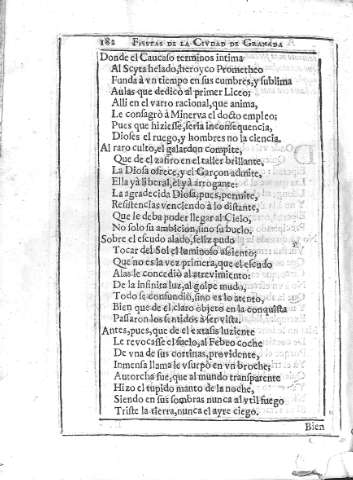 182 FIESTAS DE LA CIVDAD DE GRANADA
Donde el Caucaso terminos intima
Al Scyta helado, heroyco Prometheo
Funda à vn tiempo en sus cumbres, y sublima
Aulas que dedicò al primer Liceo;
Alli en el varro racional, que anima,
Le consagrò à Minerva el docto empleo;
Pues que hiziesse, seria inconsequencia,
Dioses el ruego, y hombres no la ciencia.
Al raro culto, el galardon compite,
Que de el zafiro en el taller brillante,
La Diosa ofrece, y el Garçon admite,
Ella yà liberal, èl yà arrogante:
La agradecida Diosa, pues, permite,
Resistencias venciendo à lo distante,
Que le deba poder llegar al Cielo,
No solo su ambicion, sino su buelo.
Sobre el escudo alado, feliz pudo
Tocar del Sol el luminoso assiento;
Que no es la vez primera, que el escudo
Alas le concediò al atrevimiento:
De la infinita luz, al golpe mudo,
Todo se confundiò, sino es lo atento,
Bien que de el claro objeto en la conquista
Passaron los sentidos à ser vista.
Antes, pues, que de el extasis luziente
Le revocasse el suelo, al Febeo coche
De vna de sus cortinas, providente,
Inmensa llama le vsurpò en vn broche;
Autorcha fue, que al mundo transparente
Hizo el tupido manto de la noche,
Siendo en sus sombras nunca al vtil fuego
Triste la tierra, nunca el ayre ciego.
Bien